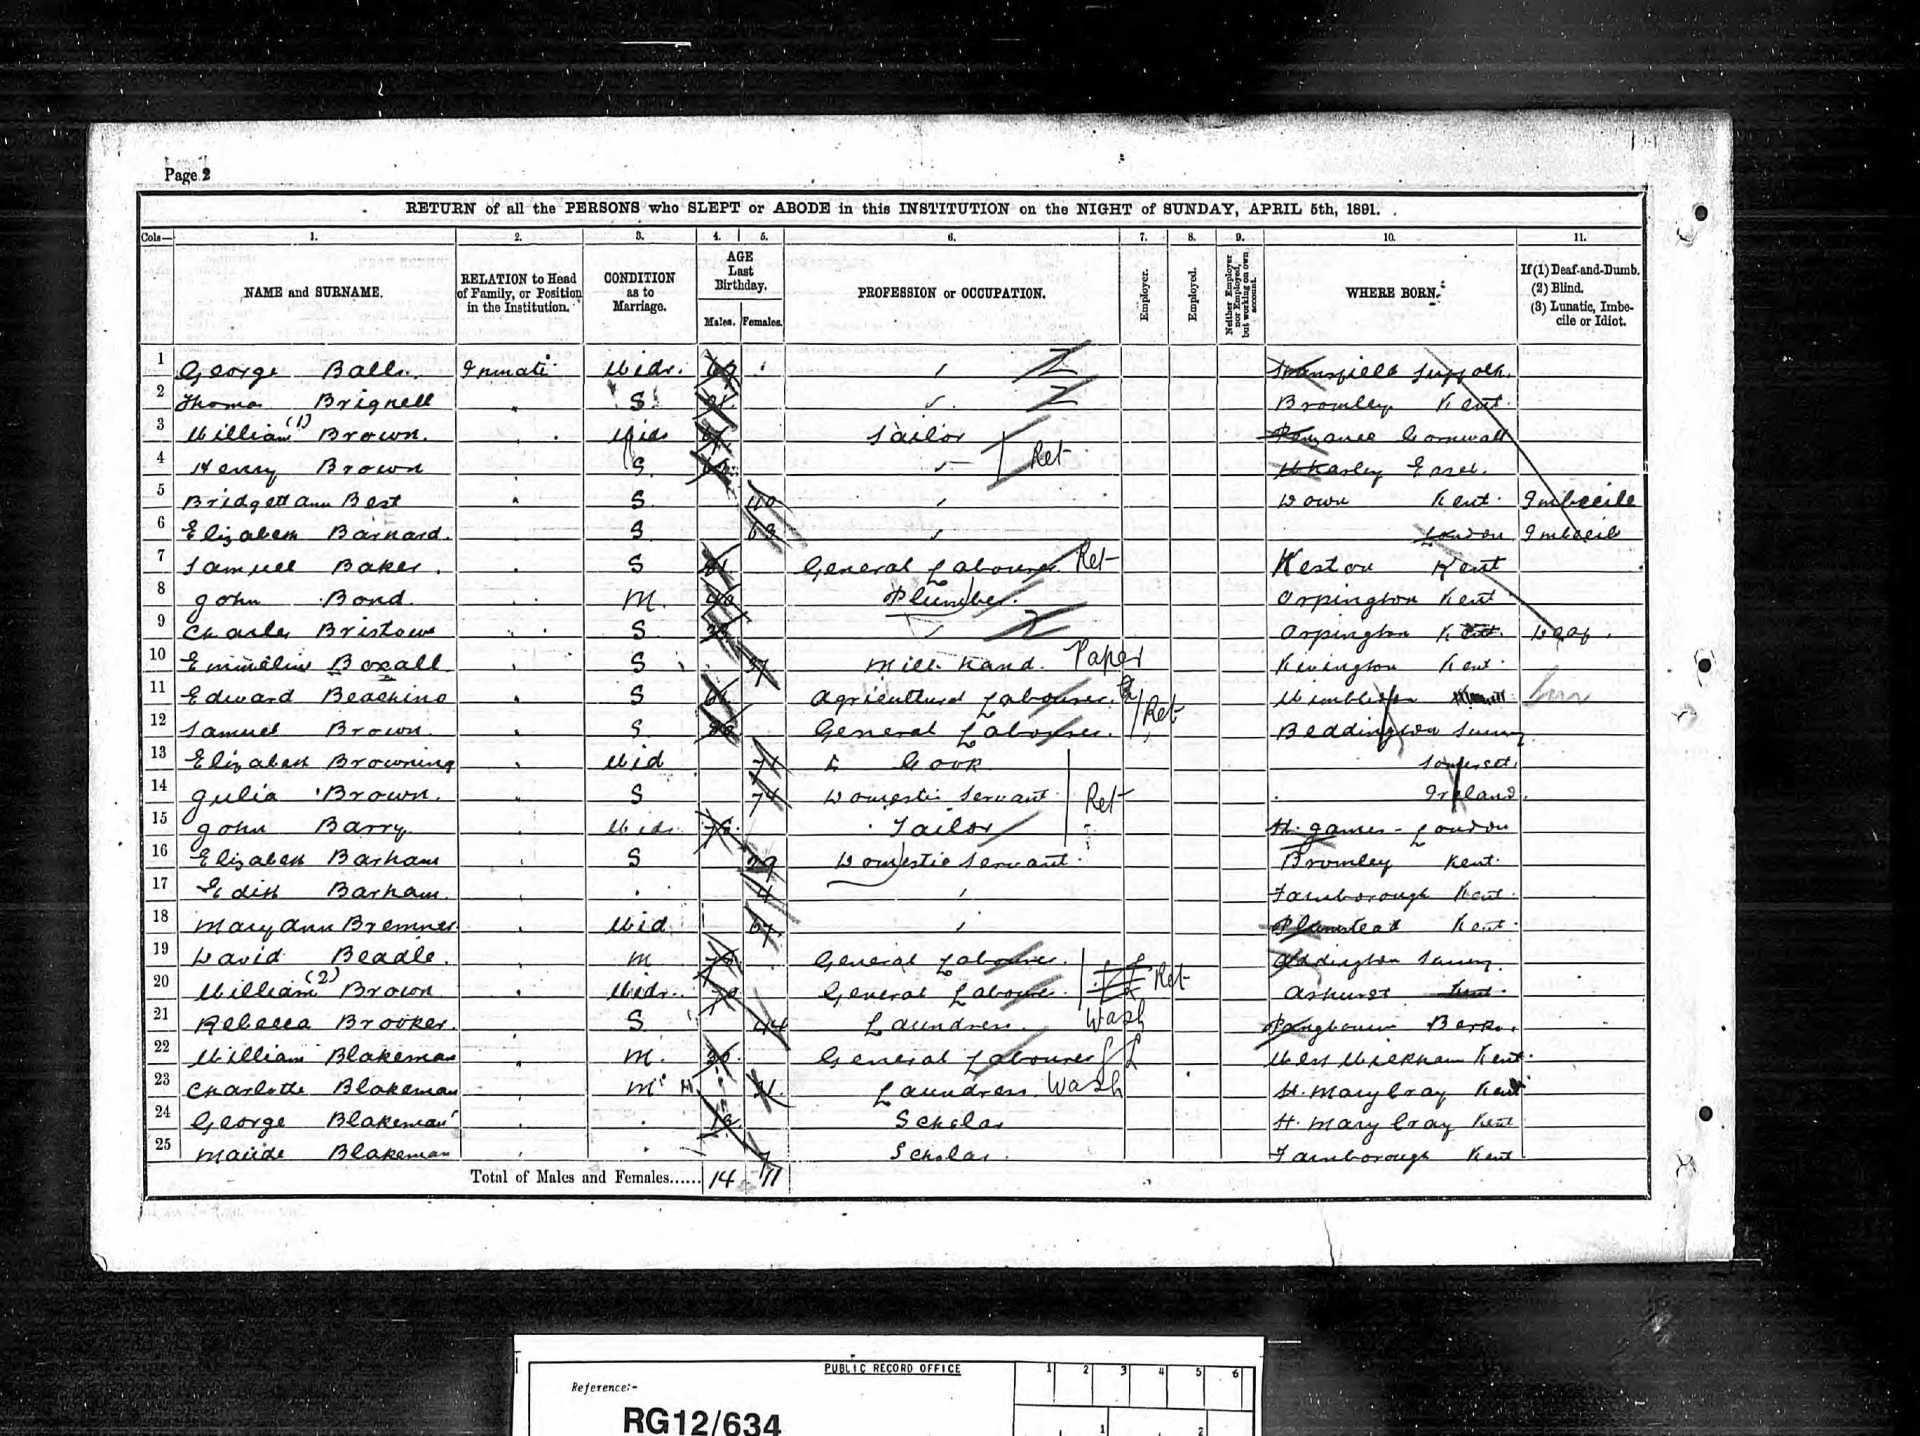 Page 2
RETURN of all the PERSONS who SLEPT or ABODE in this INSTITUTION on the NIGHT of SUNDAY, APRIL 5th, 1891.
Cols— 1. 2. 3. 4. 5. 6. 7. 8. 9. 10. 11.
NAME and SURNAME. RELATION to Head of Family, or Position in the Institution. CONDITION as to Marriage. AGE Last Birthday. Males. Females. PROFESSION or OCCUPATION. Employer. Employed. Neither Employer nor Employed, but working on own account. WHERE BORN. If (1) Deaf-and-Dumb. (2) Blind. (3) Lunatic, Imbecile or Idiot.
1 George Balls Inmate Widr. Suffolk
2 Thomas Brignell S Bromley Kent
3 William (1) Brown Wid Tailor Penzance Cornwall
4 Henry Brown S Ret Essex
5 Bridgett Ann Best S 40 Down Kent Imbecile
6 Elizabeth Barnard S 63 London Imbecile
7 Samuel Baker S General Labourer Ret Keston Kent
8 John Bond M Plumber Orpington Kent
9 Charles Bristow S Orpington Kent Deaf
10 Emmeline Boxall S Mill Hand Paper Kevington Kent
11 Edward Beaching S Agricultural Labourer Wimbledon
12 Samuel Brown S General Labourer Ret Beddington Surrey
13 Elizabeth Browning Wid 71 Cook Somerset
14 Julia Brown S 74 Domestic Servant Ret Ireland
15 John Barry Widr Tailor St. James London
16 Elizabeth Barham S 29 Domestic Servant Bromley Kent
17 Edith Barham 4 Farnborough Kent
18 Mary Ann Bremner Wid 67 Plumstead Kent
19 David Beadle M General Labourer Addington Surrey
20 William (2) Brown Widr General Labourer Ret Ashurst Kent
21 Rebecca Brooker S 44 Laundress Wash Pangbourne Berks
22 William Blakeman M General Labourer West Wickham Kent
23 Charlotte Blakeman M Laundress Wash St. Mary Cray Kent
24 George Blakeman Scholar St. Mary Cray Kent
25 Maude Blakeman 7 Scholar Farnborough Kent
Total of Males and Females...... 14 11
PUBLIC RECORD OFFICE 1 2 3 4 5 6
Reference:-
RG12/634 1 2